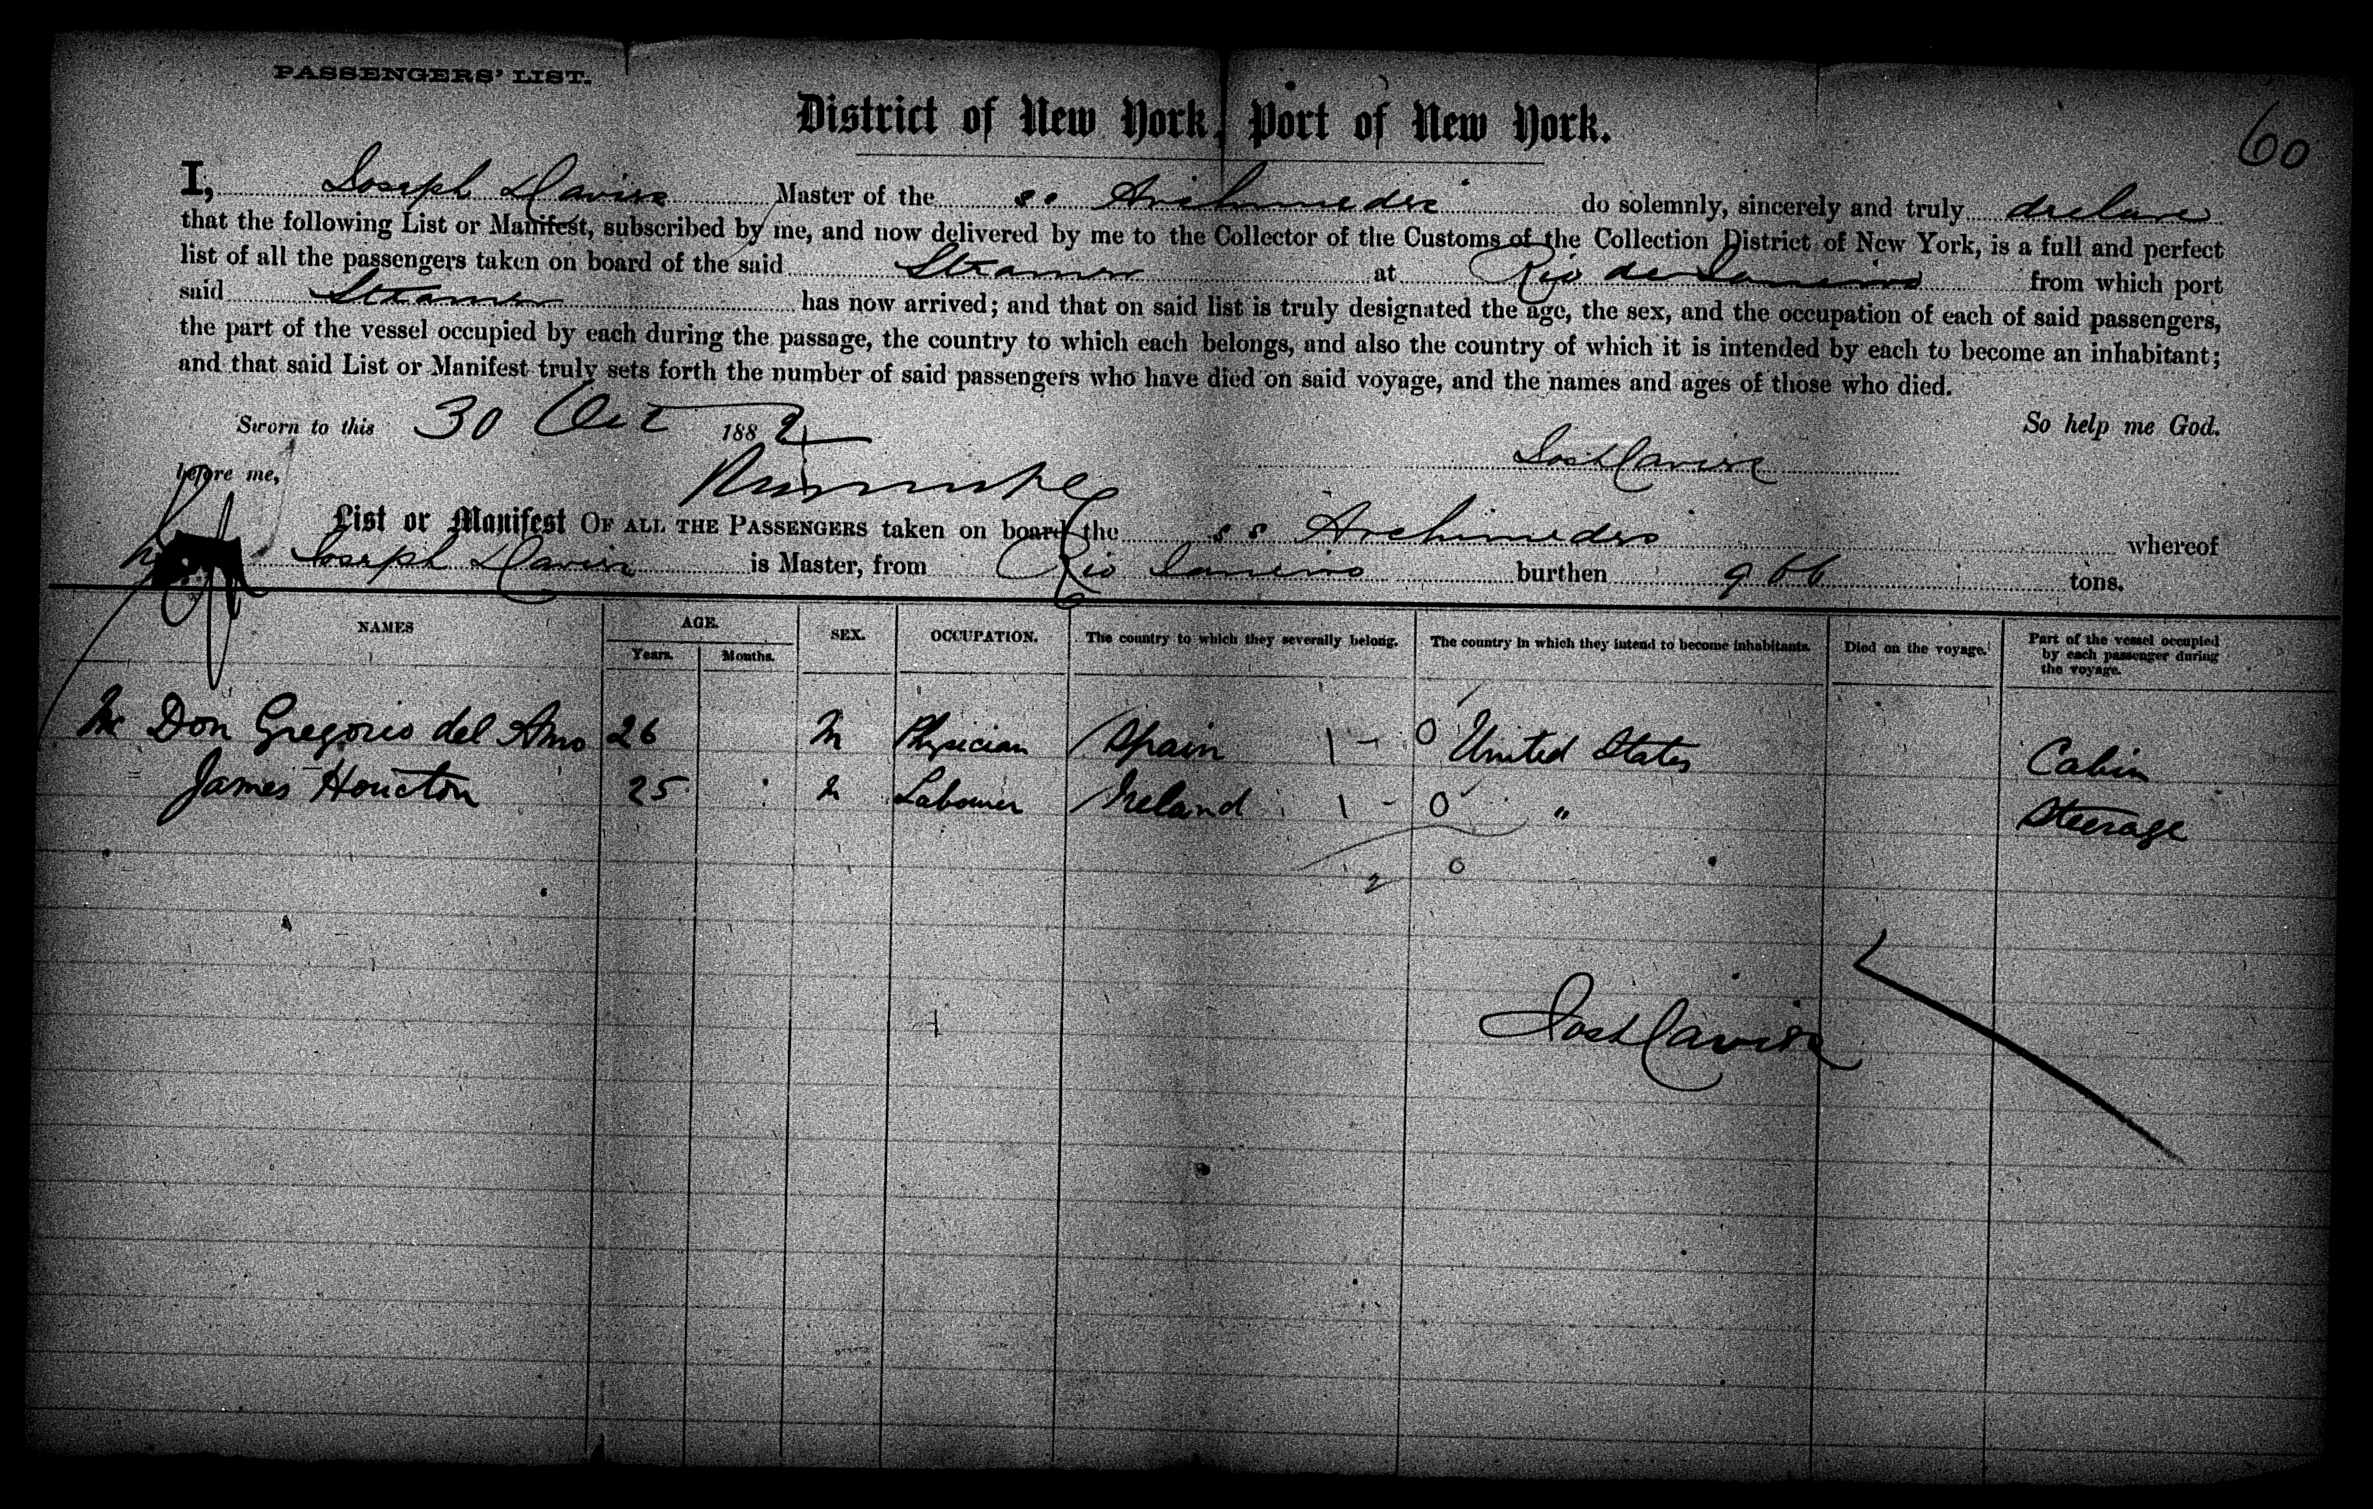 PASSENGERS' LIST.
District of New York, Port of New York.
60
I, Joseph Davies Master of the ss Archimedes do solemnly, sincerely and truly declare
that the following List or Manifest, subscribed by me, and now delivered by me to the Collector of the Customs of the Collection District of New York, is a full and perfect
list of all the passengers taken on board of the said Steamer at Rio de Janeiro from which port
said Steamer has now arrived; and that on said list is truly designated the age, the sex, and the occupation of each of said passengers,
the part of the vessel occupied by each during the passage, the country to which each belongs, and also the country of which it is intended by each to become an inhabitant;
and that said List or Manifest truly sets forth the number of said passengers who have died on said voyage, and the names and ages of those who died.
Sworn to this 30 Oct 1882 So help me God.
before me, Jos Davies
List or Manifest OF ALL THE PASSENGERS taken on board the ss Archimedes whereof
Joseph Davies is Master, from Rio Janeiro burthen 966 tons.
NAMES AGE. SEX. OCCUPATION. The country to which they severally belong. The country in which they intend to become inhabitants. Died on the voyage. Part of the vessel occupied by each passenger during the voyage.
Years. Months.
Mr Don Gregorio del Amo 26 M Physician Spain 1 - 0 United States Cabin
James Houcton 25 M Labourer Ireland 1 - 0 " Steerage
2 0
Jos Davies